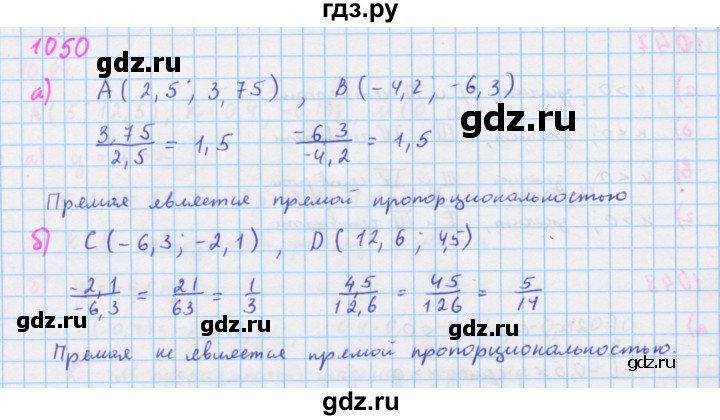 гдз.ру
1050
gdz.ru
gdz.ru
а) A(2,5; 3,75), B(-4,2, -6,3)
gdz.ru
3,75/2,5 = 1,5 -6,3/-4,2 = 1,5
Прямая является прямой пропорциональностью
gdz.ru
б) C(-6,3; -2,1), D(12,6; 4,5)
-2,1/-6,3 = 21/63 = 1/3 4,5/12,6 = 45/126 = 5/14
gdz.ru
gdz.ru
Прямая не является прямой пропорциональностью.
gdz.ru
gdz.ru